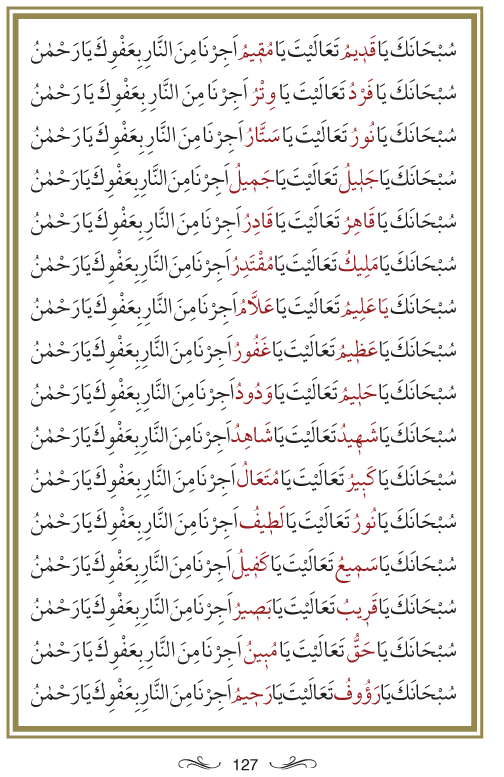 سُبْحَانَكَ يَا قَدِيمُ تَعَالَيْتَ يَا مُقِيمُ اَجِرْنَا مِنَ النَّارِ بِعَفْوِكَ يَا رَحْمٰنُ
سُبْحَانَكَ يَا فَرْدُ تَعَالَيْتَ يَا وِتْرُ اَجِرْنَا مِنَ النَّارِ بِعَفْوِكَ يَا رَحْمٰنُ
سُبْحَانَكَ يَا نُورُ تَعَالَيْتَ يَا سَتَّارُ اَجِرْنَا مِنَ النَّارِ بِعَفْوِكَ يَا رَحْمٰنُ
سُبْحَانَكَ يَا جَلِيلُ تَعَالَيْتَ يَا جَمِيلُ اَجِرْنَا مِنَ النَّارِ بِعَفْوِكَ يَا رَحْمٰنُ
سُبْحَانَكَ يَا قَاهِرُ تَعَالَيْتَ يَا قَادِرُ اَجِرْنَا مِنَ النَّارِ بِعَفْوِكَ يَا رَحْمٰنُ
سُبْحَانَكَ يَا مَلِيكُ تَعَالَيْتَ يَا مُقْتَدِرُ اَجِرْنَا مِنَ النَّارِ بِعَفْوِكَ يَا رَحْمٰنُ
سُبْحَانَكَ يَا عَلِيمُ تَعَالَيْتَ يَا عَلَّامُ اَجِرْنَا مِنَ النَّارِ بِعَفْوِكَ يَا رَحْمٰنُ
سُبْحَانَكَ يَا عَظِيمُ تَعَالَيْتَ يَا غَفُورُ اَجِرْنَا مِنَ النَّارِ بِعَفْوِكَ يَا رَحْمٰنُ
سُبْحَانَكَ يَا حَلِيمُ تَعَالَيْتَ يَا وَدُودُ اَجِرْنَا مِنَ النَّارِ بِعَفْوِكَ يَا رَحْمٰنُ
سُبْحَانَكَ يَا شَهِيدُ تَعَالَيْتَ يَا شَاهِدُ اَجِرْنَا مِنَ النَّارِ بِعَفْوِكَ يَا رَحْمٰنُ
سُبْحَانَكَ يَا كَبِيرُ تَعَالَيْتَ يَا مُتَعَالُ اَجِرْنَا مِنَ النَّارِ بِعَفْوِكَ يَا رَحْمٰنُ
سُبْحَانَكَ يَا نُورُ تَعَالَيْتَ يَا لَطِيفُ اَجِرْنَا مِنَ النَّارِ بِعَفْوِكَ يَا رَحْمٰنُ
سُبْحَانَكَ يَا سَمِيعُ تَعَالَيْتَ يَا كَفِيلُ اَجِرْنَا مِنَ النَّارِ بِعَفْوِكَ يَا رَحْمٰنُ
سُبْحَانَكَ يَا قَرِيبُ تَعَالَيْتَ يَا بَصِيرُ اَجِرْنَا مِنَ النَّارِ بِعَفْوِكَ يَا رَحْمٰنُ
سُبْحَانَكَ يَا حَقُّ تَعَالَيْتَ يَا مُبِينُ اَجِرْنَا مِنَ النَّارِ بِعَفْوِكَ يَا رَحْمٰنُ
سُبْحَانَكَ يَا رَؤُوفُ تَعَالَيْتَ يَا رَحِيمُ اَجِرْنَا مِنَ النَّارِ بِعَفْوِكَ يَا رَحْمٰنُ
127